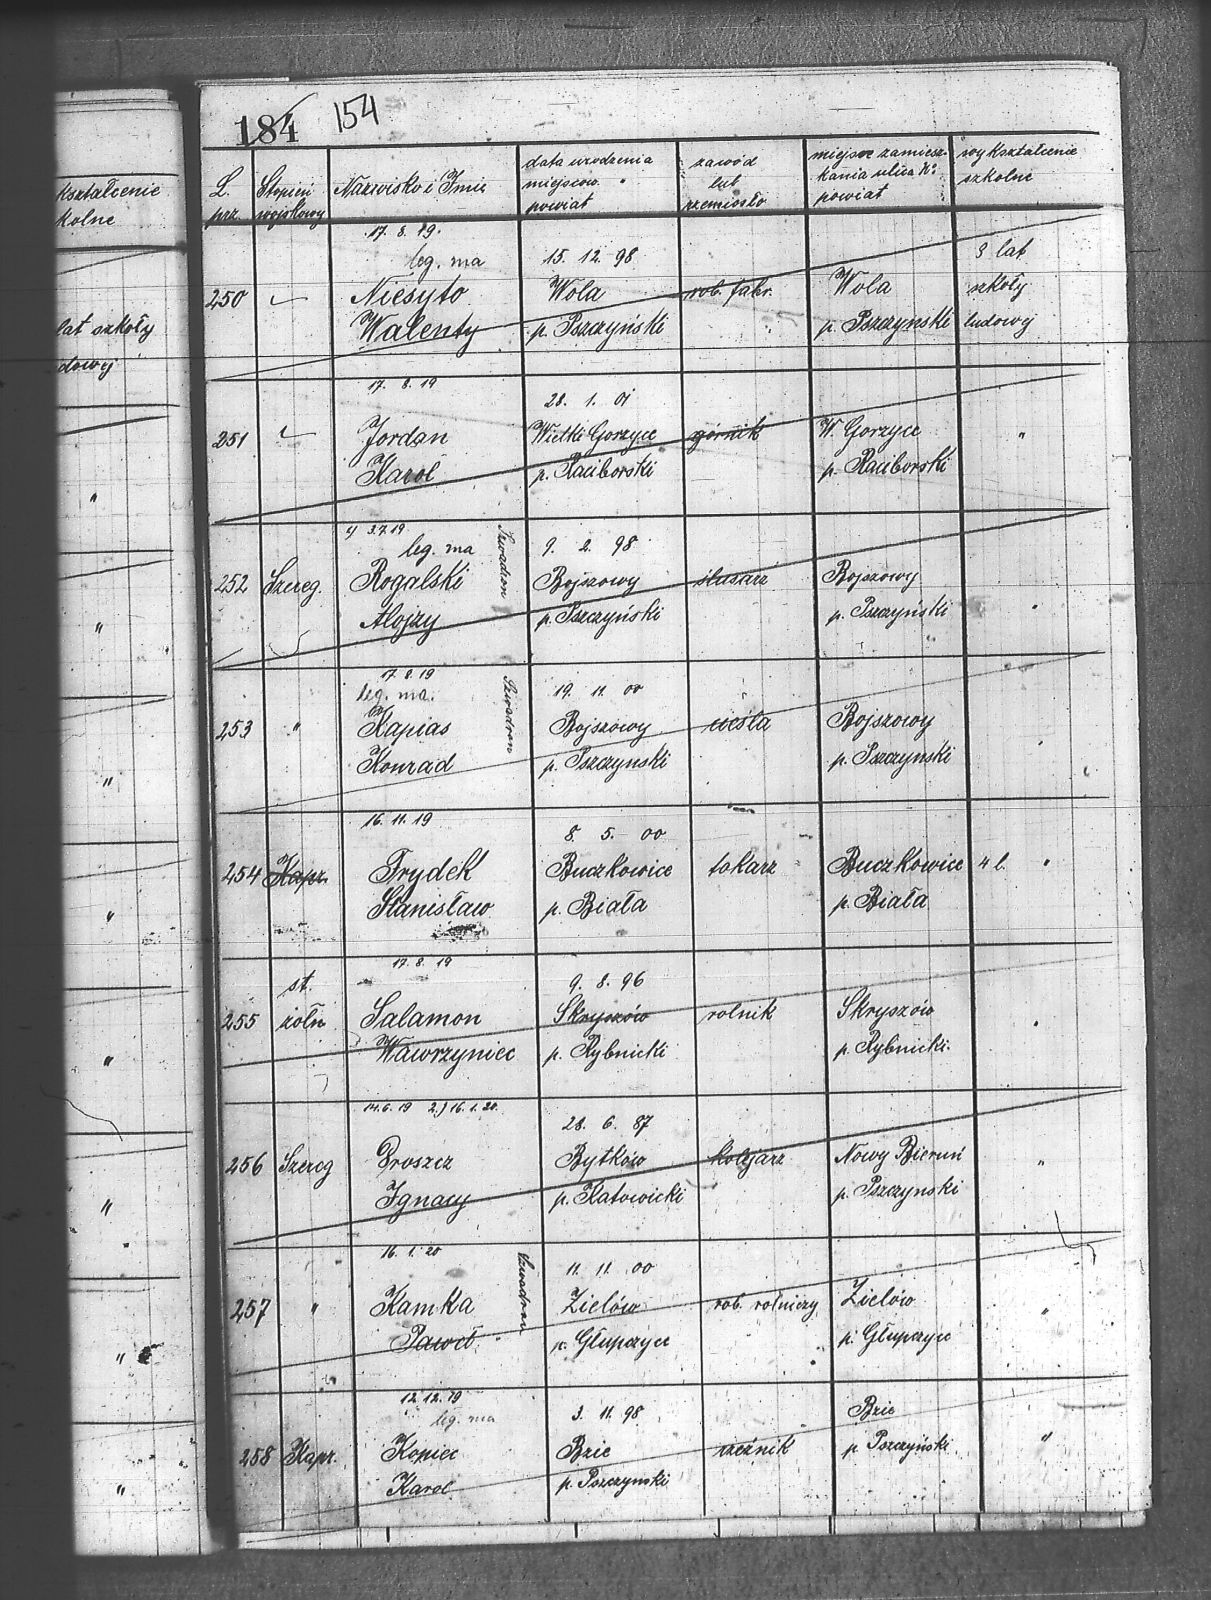 kształcenie
kolne
lat szkoły
dowy
"
"
"
"
"
"
"
"
184 154
L. prz.
Stopień wojskowy
Nazwisko i Imię
data urodzenia
miejscow.
powiat
zawód
lub
rzemiosło
miejsce zamiesz-
kania ulica No
powiat
wykształcenie
szkolne
17. 8. 19.
leg. ma 15. 12. 98 8 lat
250 Niesyto Wola rob. fabr. Wola szkoły
Walenty p. Pszczyński p. Pszczyński ludowy
17. 8. 19
28. 1. 01
251 Jordan Wielki Gorzyce górnik W. Gorzyce "
Karol p. Raciborski p. Raciborski
1) 3.7.19
leg. ma Szwadron 9. 2. 98
252 Szereg. Rogalski Bojszowy ślusarz Bojszowy
Alojzy p. Pszczyński p. Pszczyński "
17. 8. 19
leg. ma. Szwadron 19. 11. 00
253 " Kapias Bojszowy cieśla Bojszowy
Konrad p. Pszczynski p. Pszczynski "
16. 11. 19
8. 5. 00
254 Kapr. Frydek Buczkowice tokarz Buczkowice 4 l. "
Stanisław p. Biała p. Biała
17. 8. 19
st. 9. 8. 96
255 żołn Salamon Skryszów rolnik Skryszów "
Wawrzyniec p. Rybnicki p. Rybnicki.
14. 6. 19 2.) 16. 1. 20.
28. 6. 87
256 Szereg Proszcz Bytków kolejarz Nowy Bieruń "
Ignacy p. Katowicki p. Pszczynski
16. 1. 20
Szwadron 11. 11. 00
257 " Kamka Zielów rob. rolniczy Zielów "
Paweł p. Głupczyce p. Głupczyce
12. 12. 19
leg. ma 3. 11. 98 Brzie
258 Kapr. Kopiec Brzie rzeźnik p. Pszczyński "
Karol p. Pszczynski